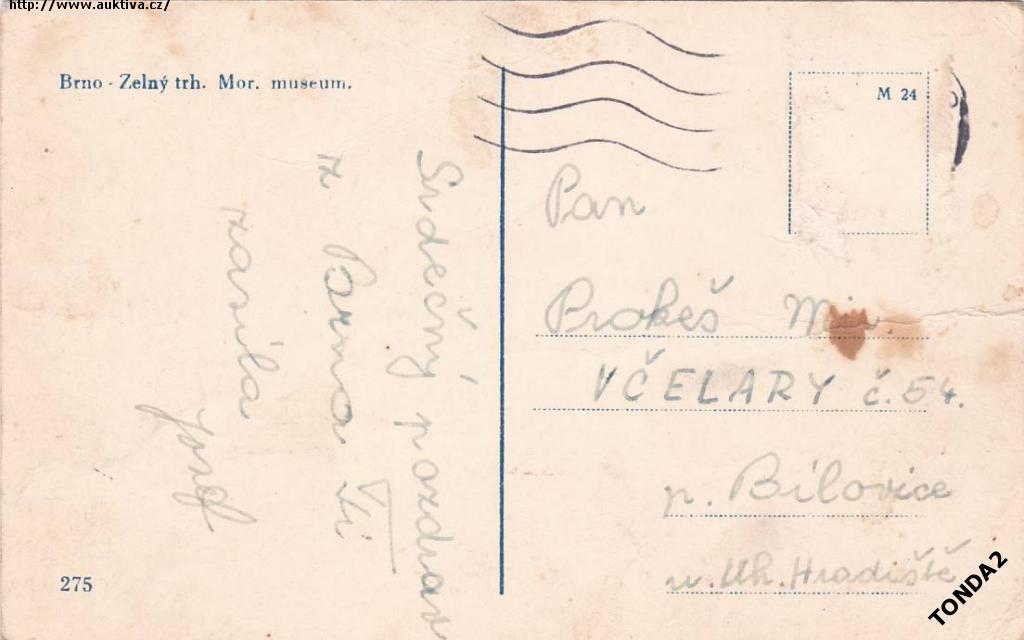 http://www.auktiva.cz/
Brno - Zelný trh. Mor. museum.
M 24
Srdečný pozdrav
z Brna Ti
zasílá
Josef
Pan
Prokeš
VČELARY č. 54.
p. Bílovice
u. Uh. Hradiště
275
TONDA2